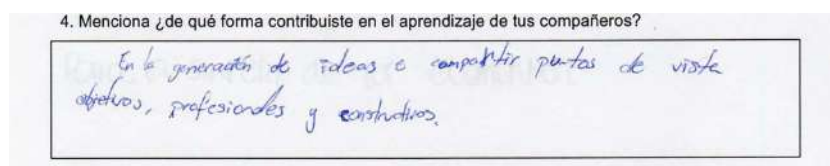 4. Menciona ¿de qué forma contribuiste en el aprendizaje de tus compañeros?
En la generación de ideas e compartir puntos de vista
objetivos, profesionales y constructivos.